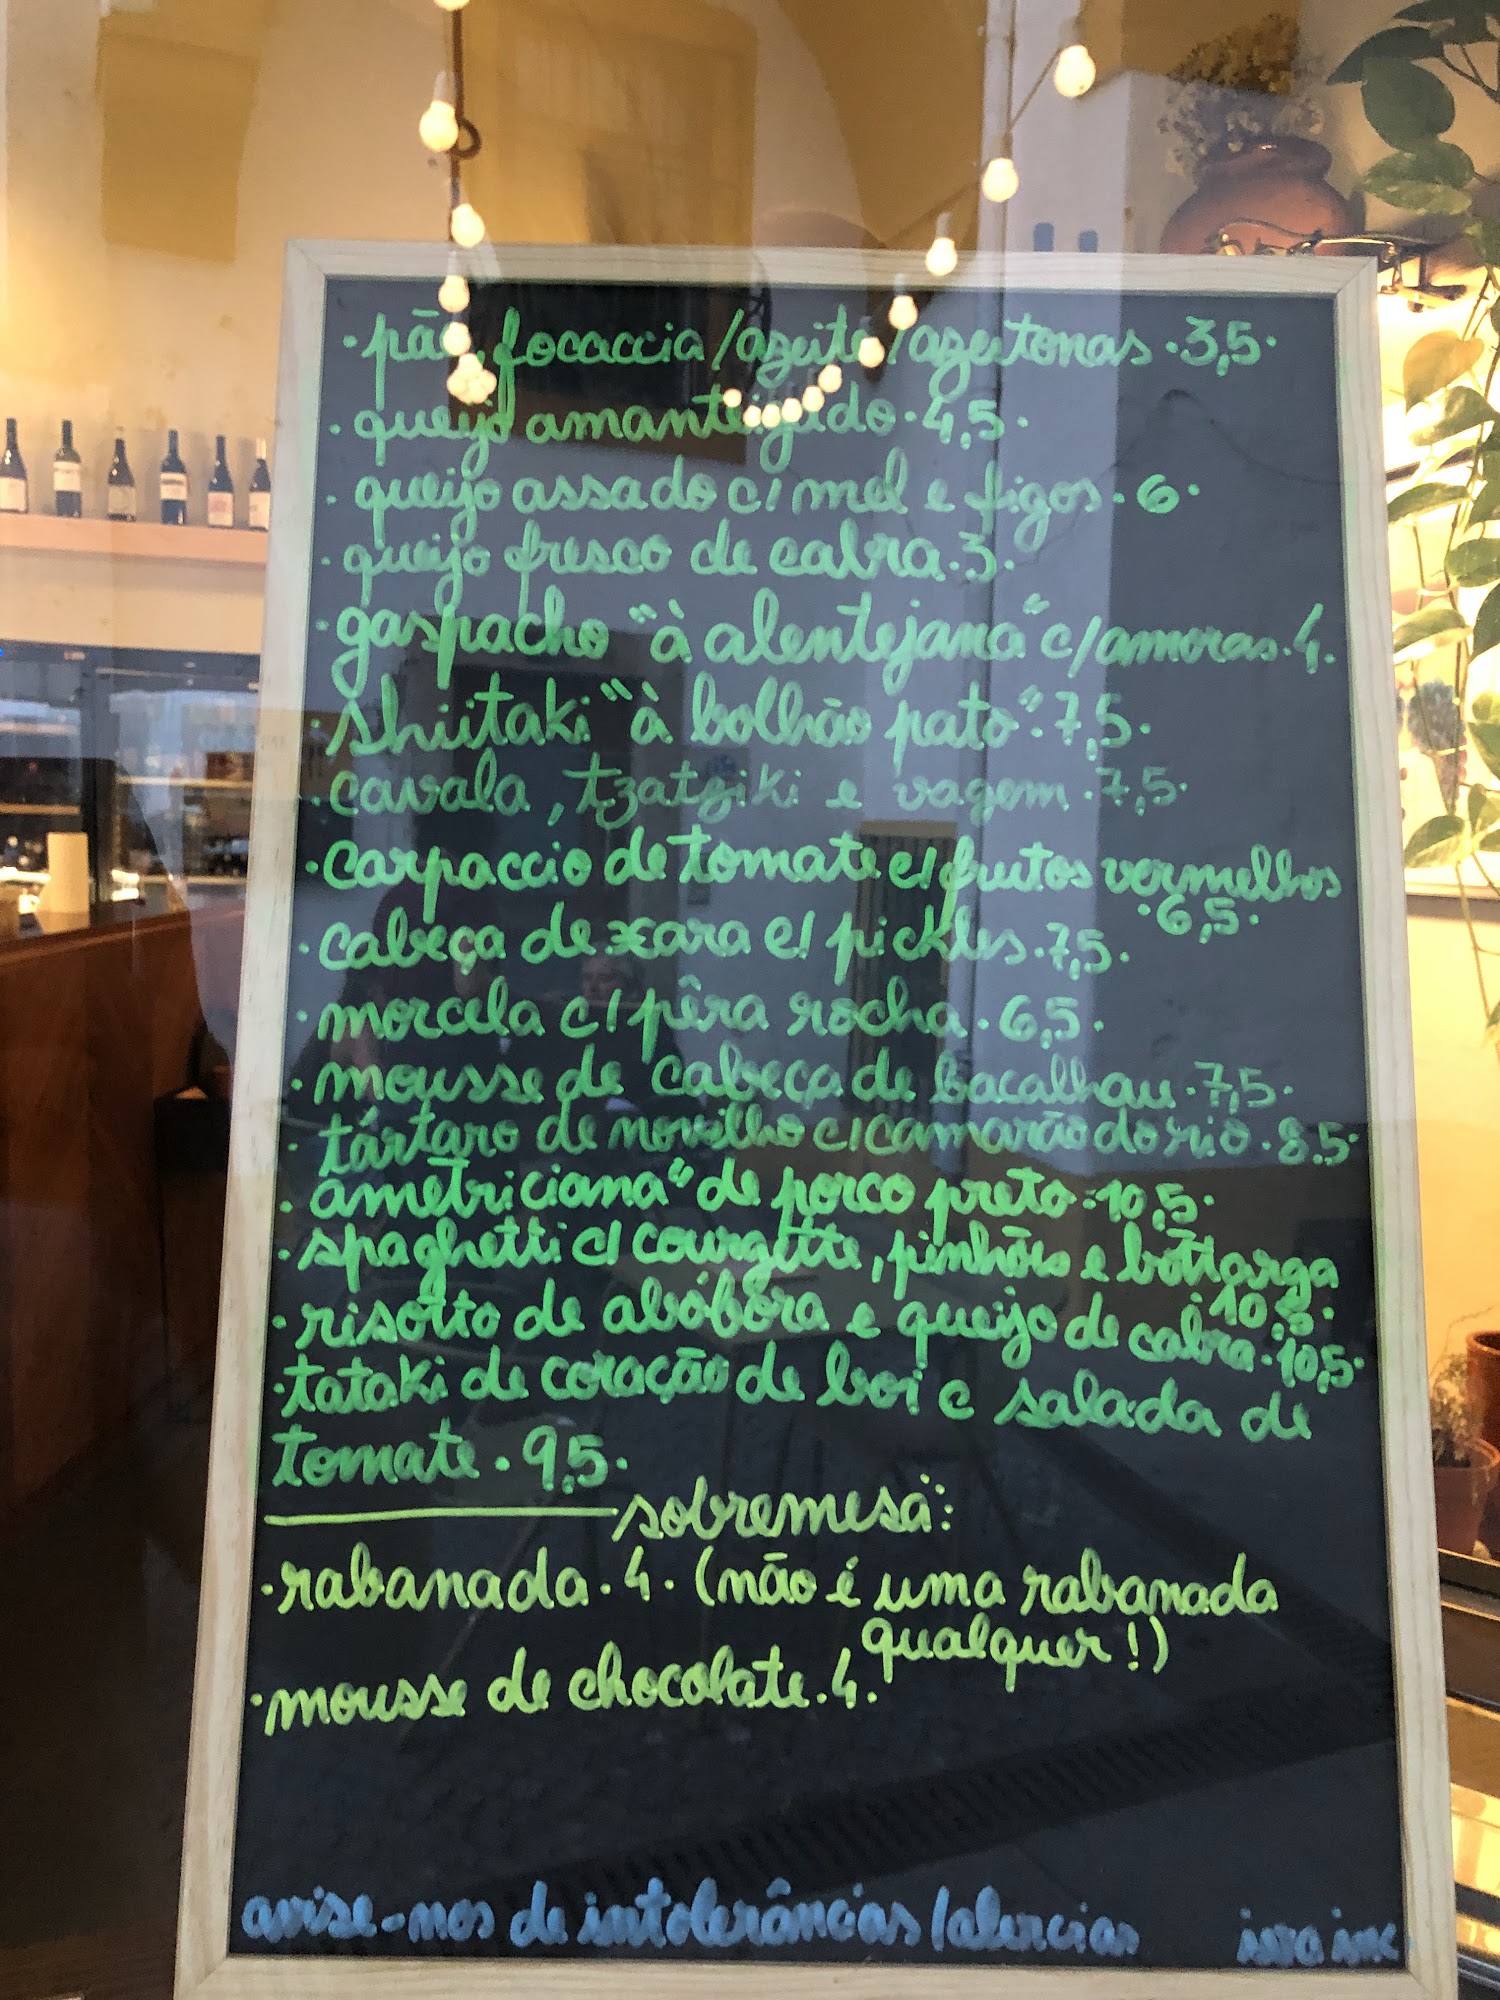 · pão, focaccia / azeite / azeitonas · 3,5 ·
· queijo amanteigado · 4,5 ·
· queijo assado c/ mel e figos · 6 ·
· queijo fresco de cabra · 3 ·
· gaspacho "à alentejana" c/ amoras · 4 ·
· shiitaki "à bolhão pato" · 7,5 ·
· cavala, tzatziki e vagem · 7,5 ·
· carpaccio de tomate c/ frutos vermelhos
· 6,5 ·
· cabeça de xara c/ pickles · 7,5 ·
· morcela c/ pêra rocha · 6,5 ·
· mousse de cabeça de bacalhau · 7,5 ·
· tártaro de novilho c/ camarão do rio · 8.5 ·
· ametriciana" de porco preto · 10,5 ·
· spaghetti c/ courgette, pinhões e bottarga
· 10,5 ·
· risotto de abóbora e queijo de cabra · 10,5 ·
· tataki de coração de boi e salada de
tomate · 9,5 ·
sobremesa:
· rabanada · 4 · (não é uma rabanada
qualquer!)
· mousse de chocolate · 4 ·
avise-nos de intolerâncias / alergias iva inc.